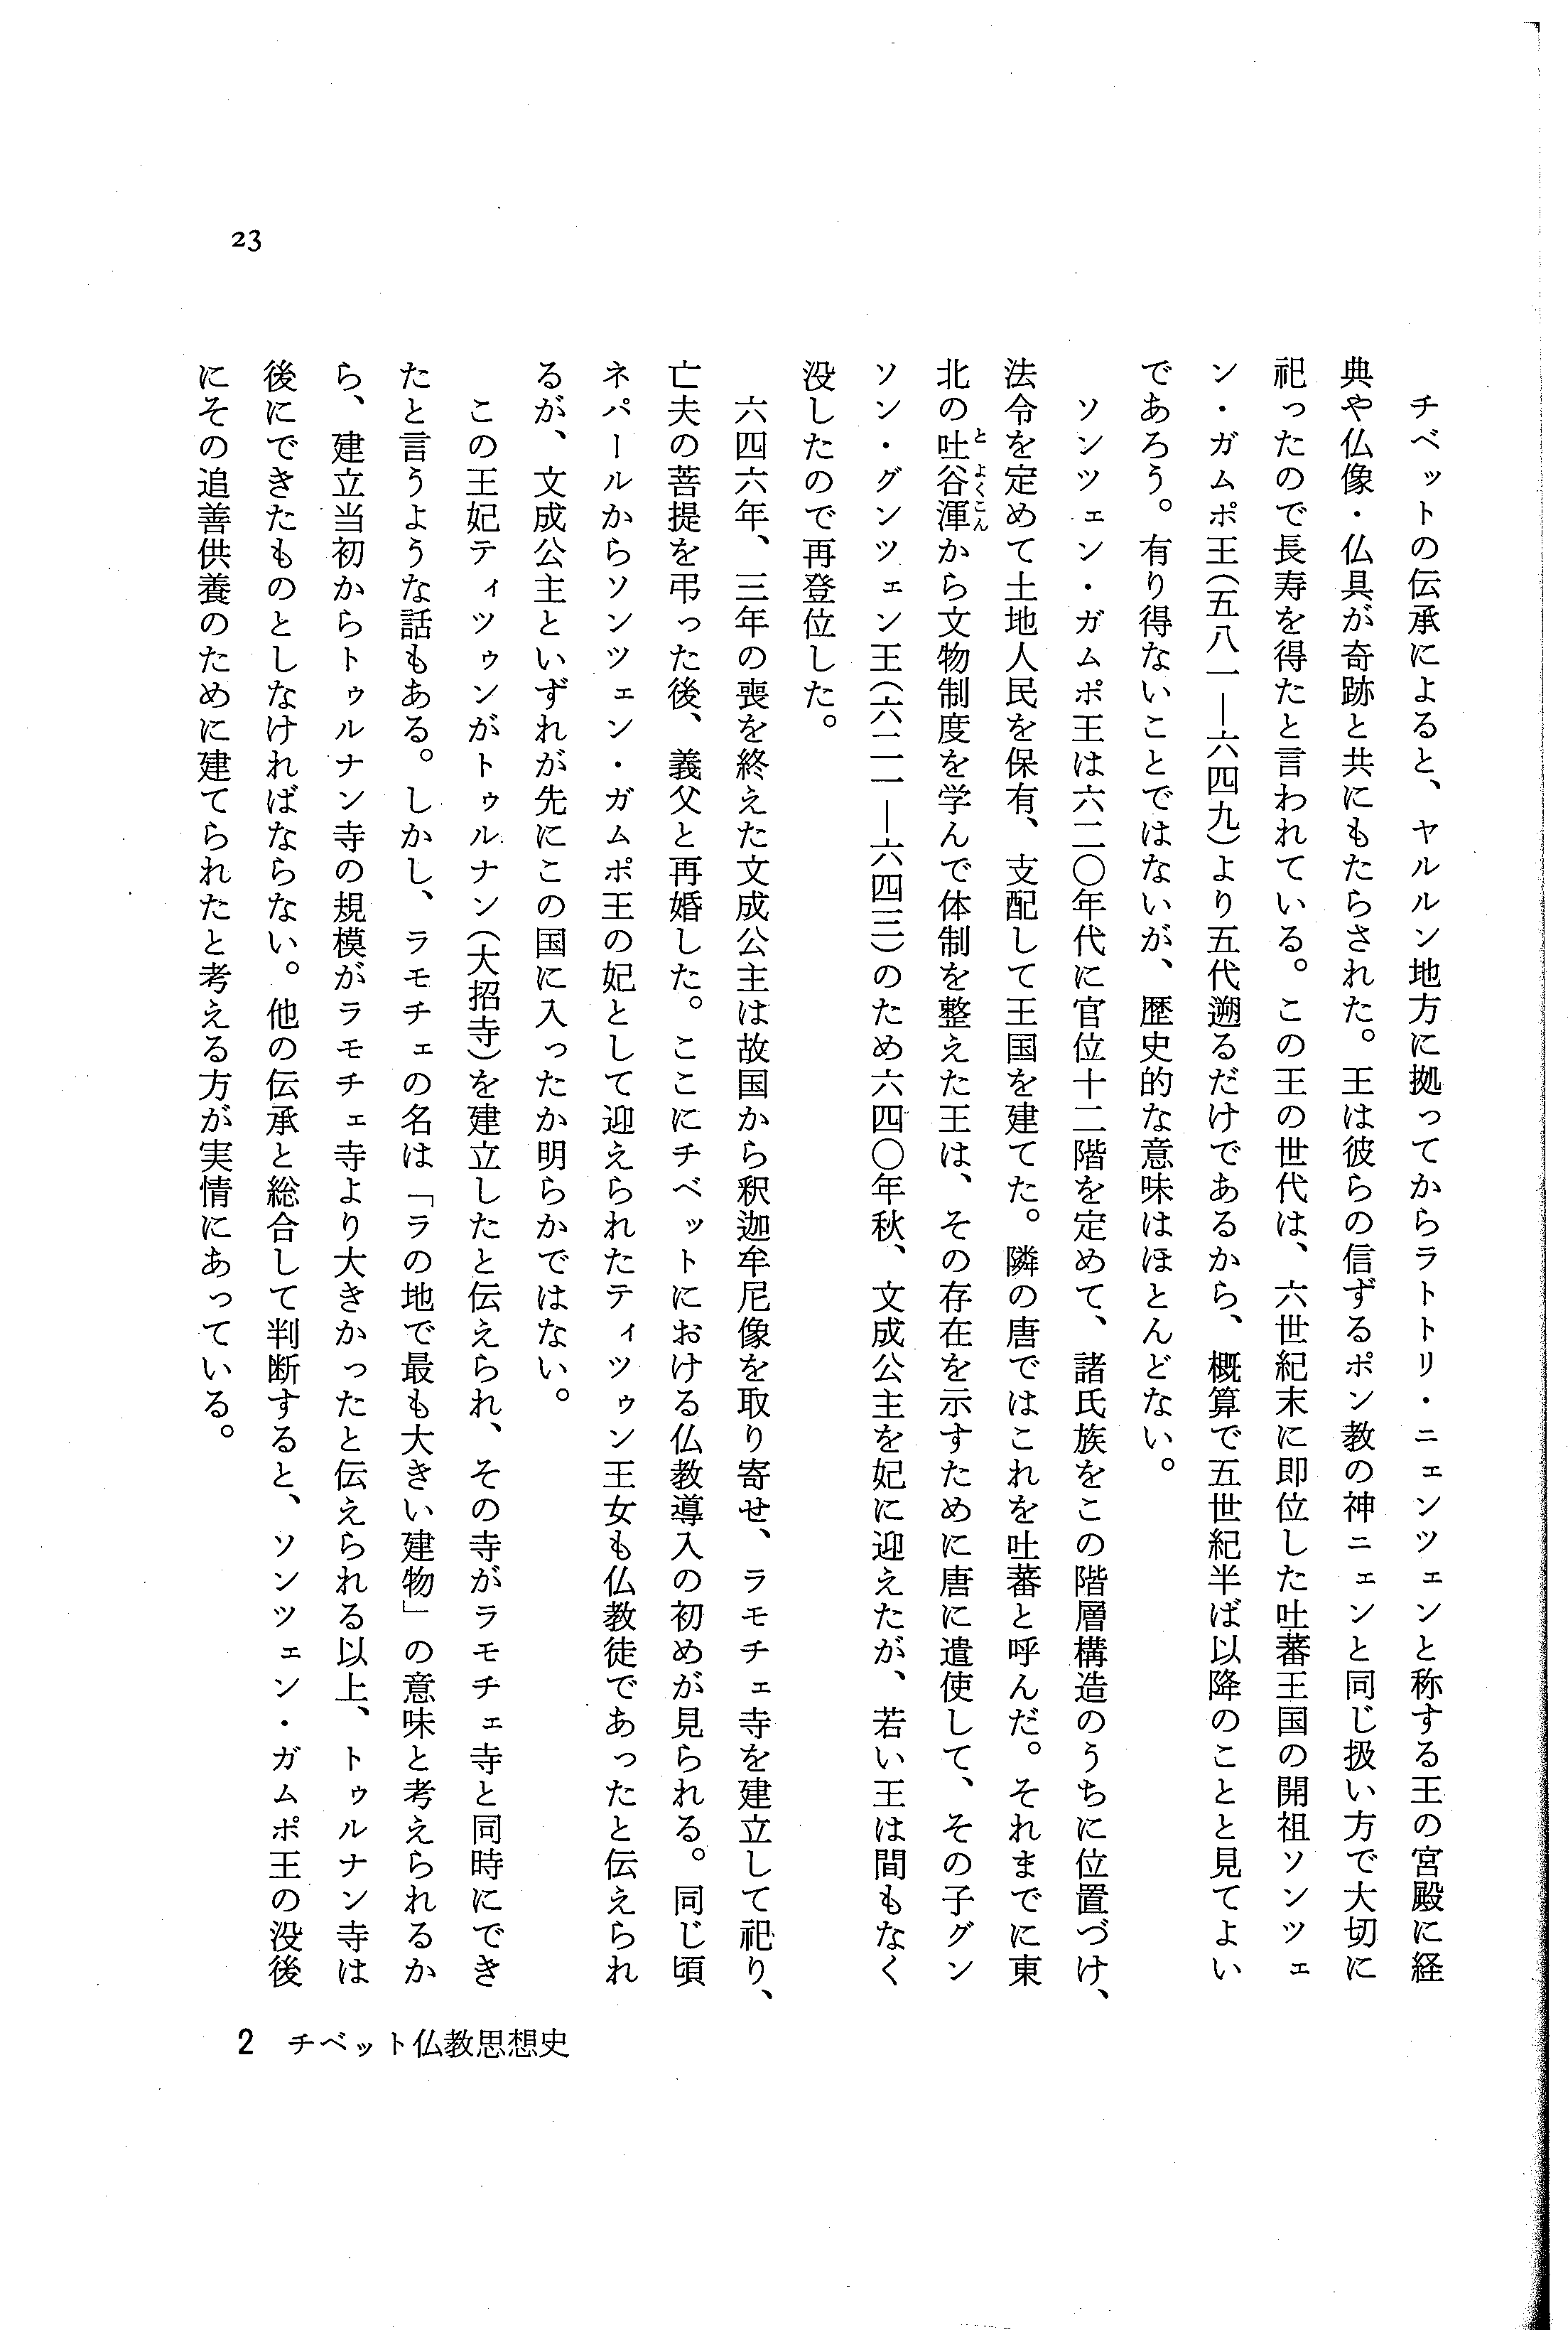 チベットの伝承によると、ヤルルン地方に拠ってからラトトリ・ニェンツェンと称する王の宮殿に経
典や仏像・仏具が奇跡と共にもたらされた。王は彼らの信ずるポン教の神ニェンと同じ扱い方で大切に
祀ったので長寿を得たと言われている。この王の世代は、六世紀末に即位した吐蕃王国の開祖ソンツェ
ン・ガムポ王(五八一―六四九)より五代遡るだけであるから、概算で五世紀半ば以降のことと見てよい
であろう。有り得ないことではないが、歴史的な意味はほとんどない。
ソンツェン・ガムポ王は六二〇年代に官位十二階を定めて、諸氏族をこの階層構造のうちに位置づけ、
法令を定めて土地人民を保有、支配して王国を建てた。隣の唐ではこれを吐蕃と呼んだ。それまでに東
北の吐谷渾とよくこんから文物制度を学んで体制を整えた王は、その存在を示すために唐に遣使して、その子グン
ソン・グンツェン王(六二一―六四三)のため六四〇年秋、文成公主を妃に迎えたが、若い王は間もなく
没したので再登位した。
六四六年、三年の喪を終えた文成公主は故国から釈迦牟尼像を取り寄せ、ラモチェ寺を建立して祀り、
亡夫の菩提を弔った後、義父と再婚した。ここにチベットにおける仏教導入の初めが見られる。同じ頃
ネパールからソンツェン・ガムポ王の妃として迎えられたティツゥン王女も仏教徒であったと伝えられ
るが、文成公主といずれが先にこの国に入ったか明らかではない。
この王妃ティツゥンがトゥルナン(大招寺)を建立したと伝えられ、その寺がラモチェ寺と同時にでき
たと言うような話もある。しかし、ラモチェの名は「ラの地で最も大きい建物」の意味と考えられるか
ら、建立当初からトゥルナン寺の規模がラモチェ寺より大きかったと伝えられる以上、トゥルナン寺は
後にできたものとしなければならない。他の伝承と総合して判断すると、ソンツェン・ガムポ王の没後
にその追善供養のために建てられたと考える方が実情にあっている。
23
2 チベット仏教思想史